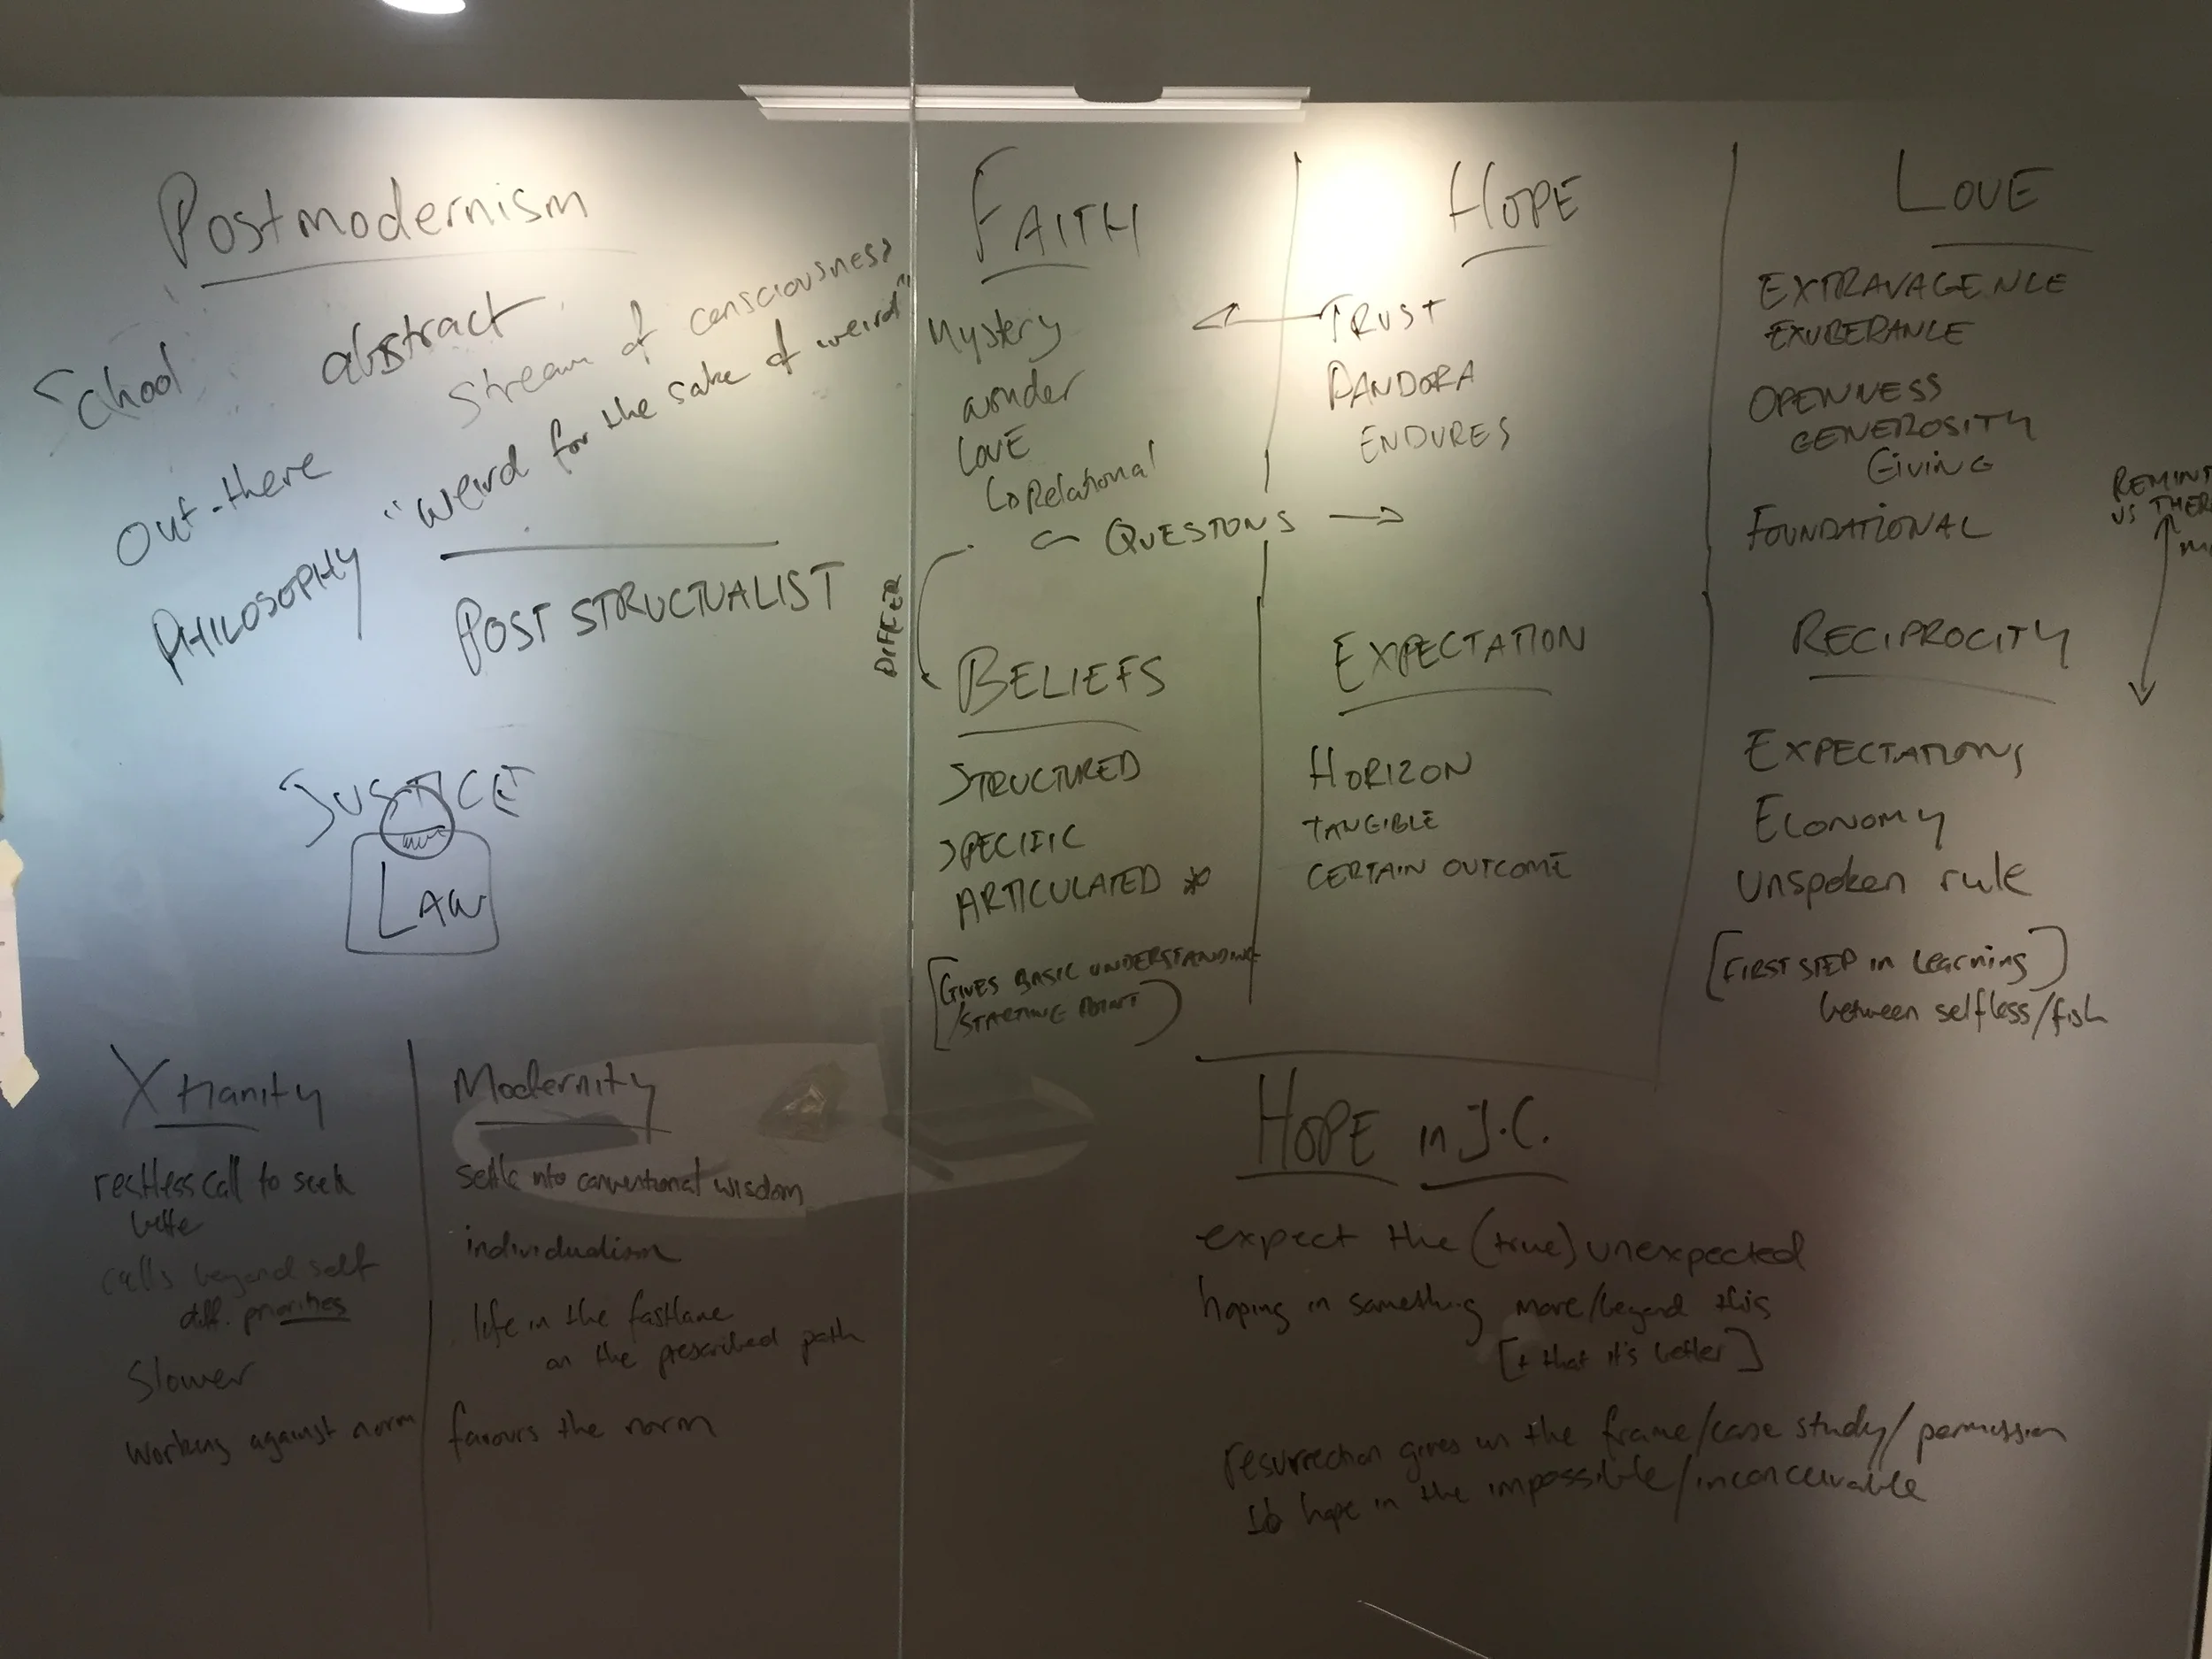 Postmodernism
School
abstract
stream of consciousness
Out-there
"weird for the sake of weird"
PHILOSOPHY
POST STRUCTUALIST
JUSTICE
LAW
Xtianity
restless call to seek
calls beyond self
diff. priorities
Slower
working against norm
Modernity
settle into conventional wisdom
individualism
life in the fastlane
on the prescribed path
favours the norm
FAITH
Mystery
wonder
LOVE
Relational
QUESTIONS
DIFFER
BELIEFS
STRUCTURED
SPECIFIC
ARTICULATED *
[GIVES BASIC UNDERSTANDING
/STARTING POINT]
HOPE
TRUST
PANDORA
ENDURES
EXPECTATION
HORIZON
TANGIBLE
CERTAIN OUTCOME
LOVE
EXTRAVAGENCE
EXUBERANCE
OPENNESS
GENEROSITY
GIVING
FOUNDATIONAL
US
RECIPROCITY
EXPECTATIONS
ECONOMY
unspoken rule
[FIRST STEP in learning]
between selfless/fish
HOPE in J.C.
expect the (true) unexpected
hoping in something more/beyond this
[+ that it's better]
resurrection gives us the frame/case study/permission
to hope in the impossible/inconceivable